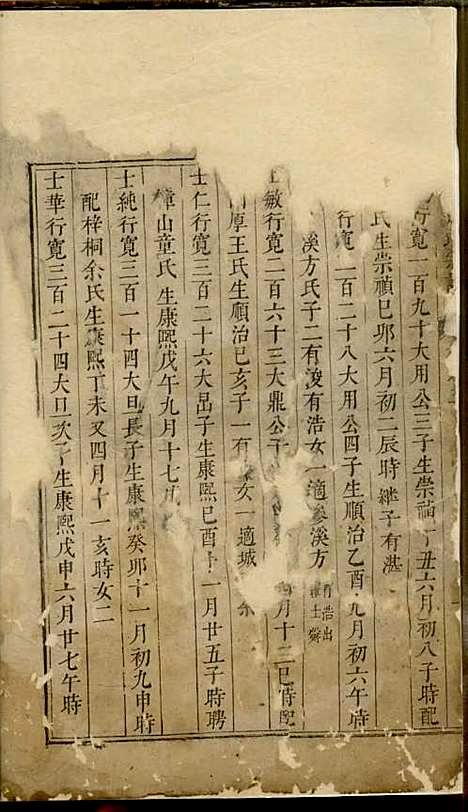 行寬一百九十大用公三子生崇禎丁丑六月初八子時配
氏生崇禎己卯六月初二辰時継子有湛
行寬一百二十八大用公四子生順治乙酉九月初六午時
溪方氏子二有浚有浩女一適參溪方
有浩出
敏行寬二百六十三大鼎公子 月十二巳時配
厚王氏生順治己亥子一有 女一適城 余
士仁行寬三百二十六大昌子生康熙己酉十一月廿五子時聘
章山童氏生康熙戊午九月十七
士純行寬三百一十四大旦長子生康熙癸卯十一月初九申時
配梓桐余氏生康熙丁未又四月十一亥時女二
士華行寬三百二十四大旦次子生康熙戊申六月廿七午時